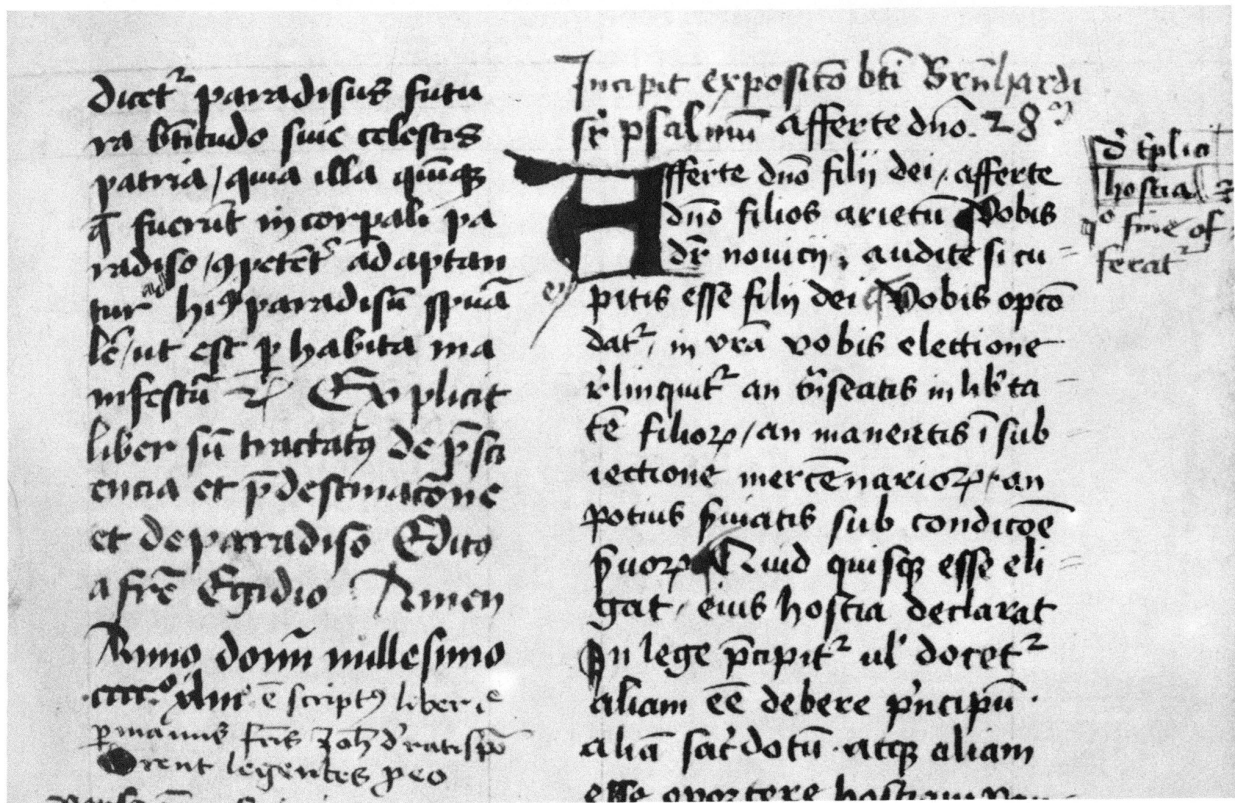 dicetʳ paradisus futu
ra btītudo siue celestis
patria / quia illa quūqꝫ
q̄ fuerūt in corpali pa
radiso / ꝯpetētʳ adaptan
tur ad hūꝰ paradisū spūa
lē / ut est p habita ma
nifestū Explicit
liber sū tractatꝰ de p̄sci
encia et p̄destinacōne
et de paradiso Editꝰ
a fr̄e Egidio Amen
Anno domī millesimo
ē scriptꝰ liber iᵉ
ꝑ manus fr̄is Joh̄ d' ratispō
Orent legentes ꝓ eo
Incipit exposicō btī Bern̄hardi
sr̄ psalmū afferte dn̄o. 28
Afferte dn̄o filij dei / afferte
dn̄o filios arietū Vobis
dr̄ nouicij ; audite si cu =
pitis esse filij dei Vobis opcō
datʳ / in vrā vobis electione
r̓linquitʳ an t̄nseatis in lib̓ta
tē filioꝝ / an maneatis ī sub =
iectione mercēnarioꝝ / an
potius s̓uiatis sub condicōe
s̓uoꝝ Quid quisqꝫ esse eli =
gat / eius hostia declarat
In lege p̄cipitʳ ul' docetʳ
aliam ēe debere p̓ncipū ·
aliā sac̓dotū · atqꝫ aliam
esse oportere hostiam
d' t̓plici
hostia
qº sine of
feratʳ